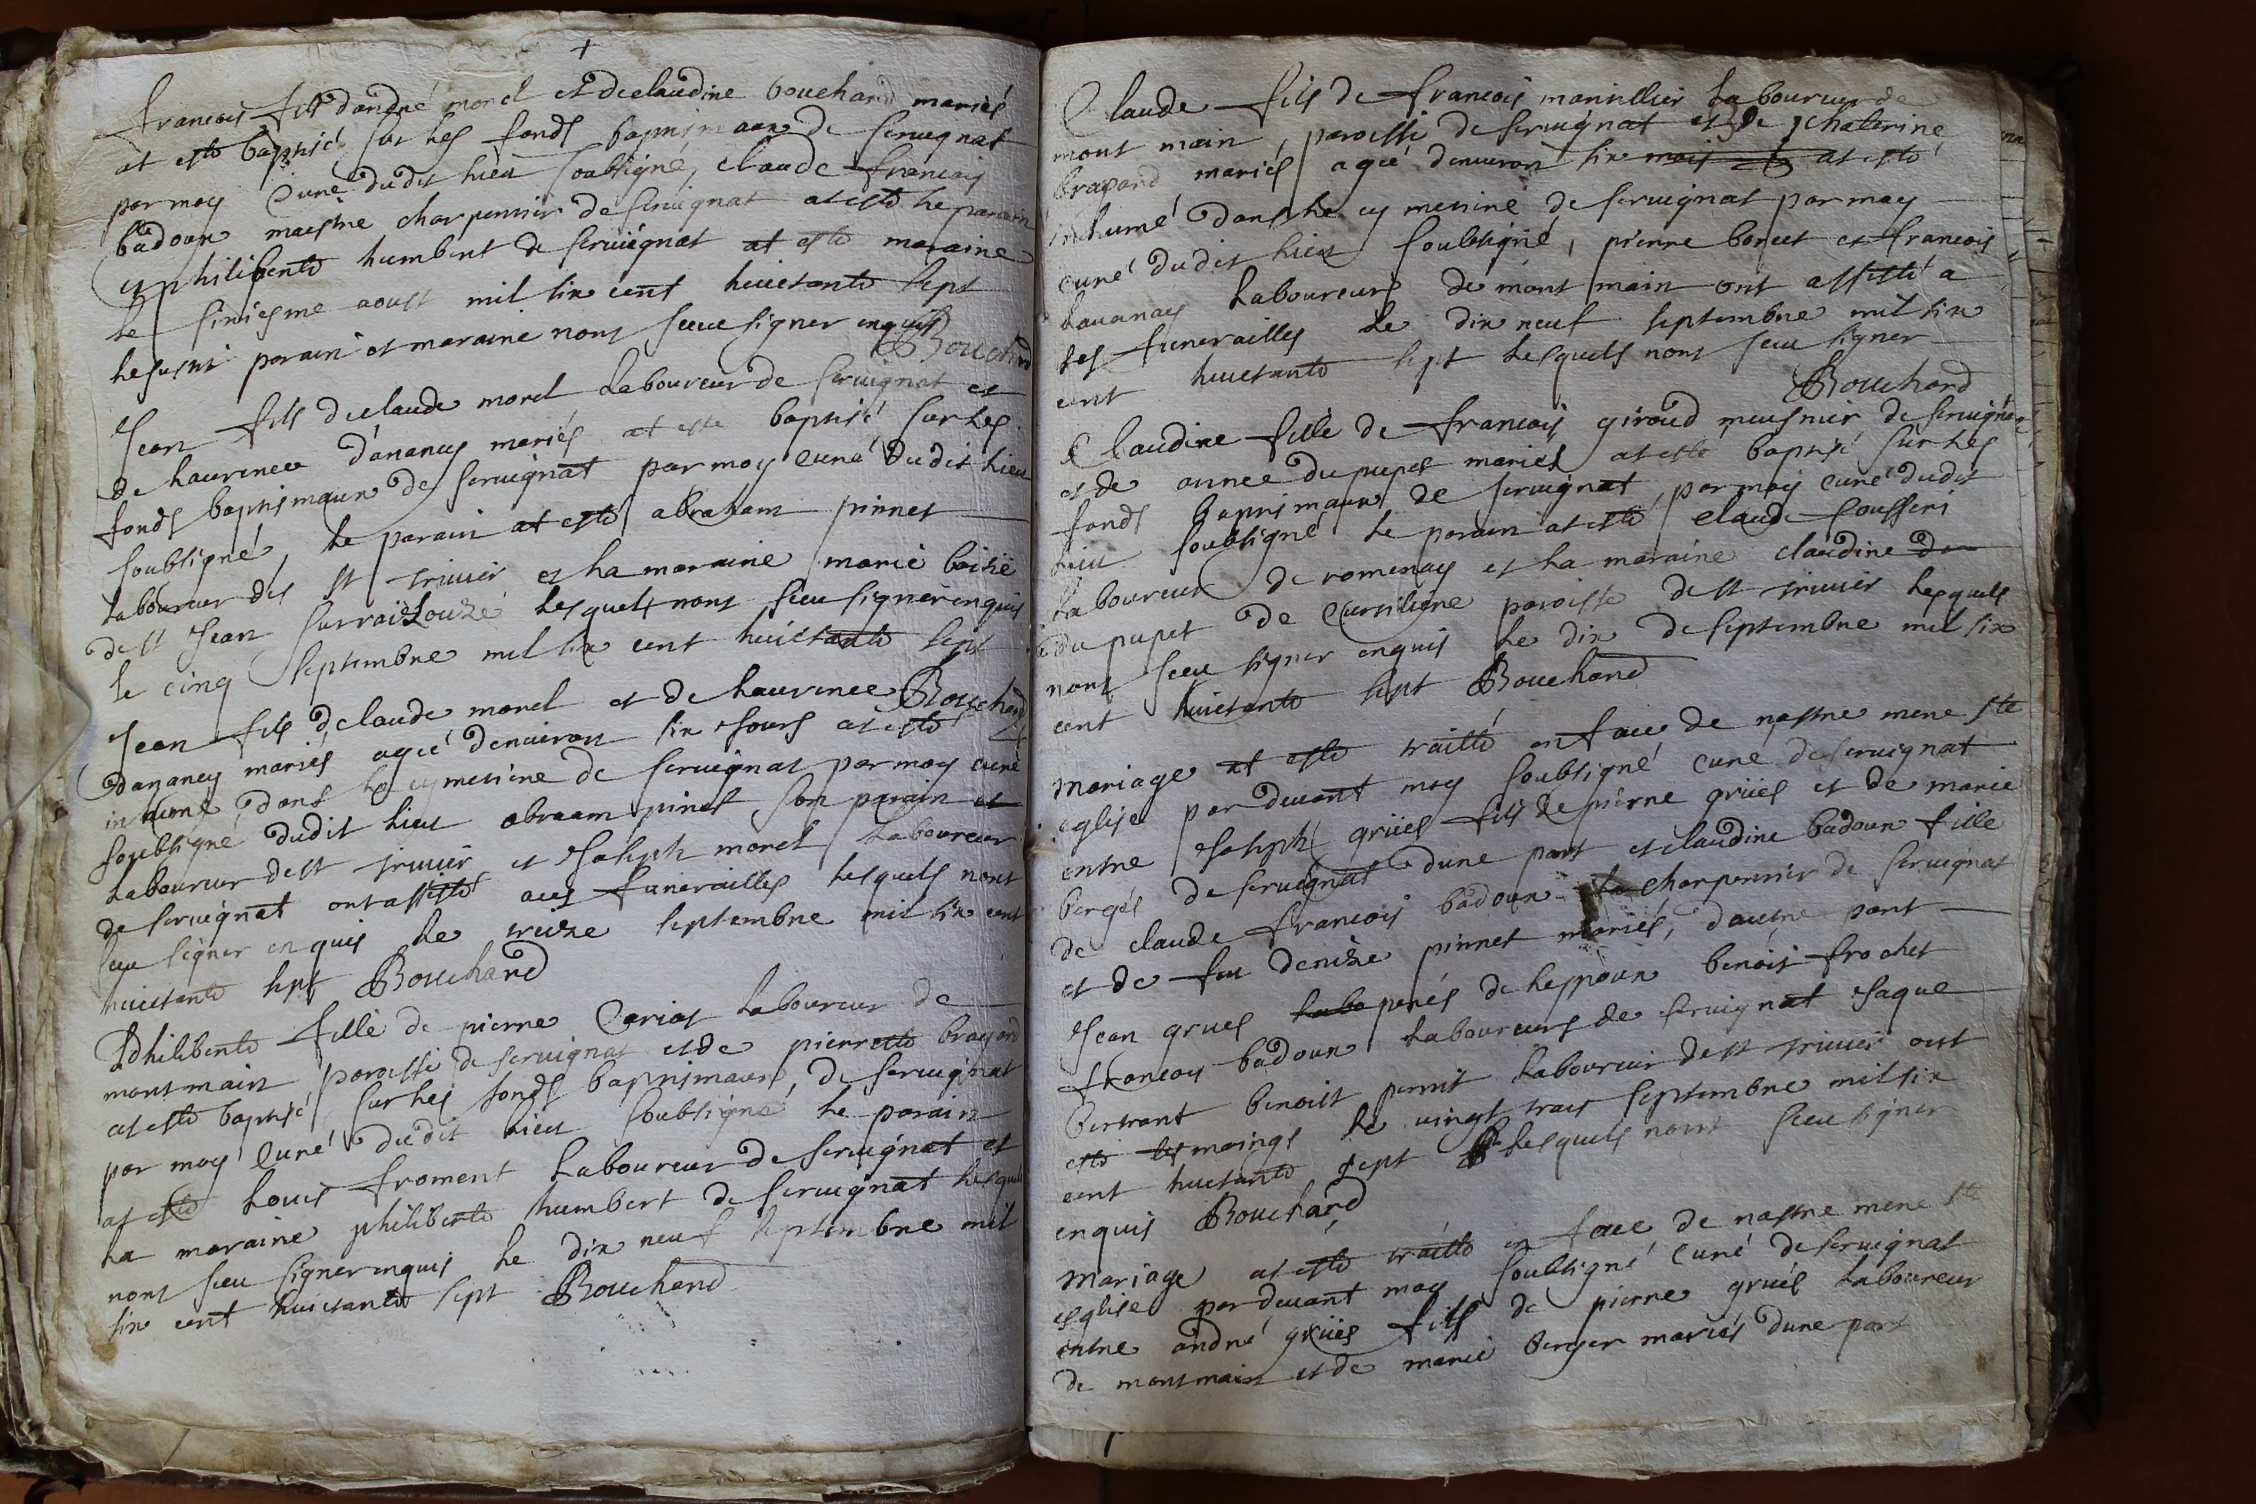 +
francois fils dandré morel et de claudine bouchard mariés
at esté baptisé sur les fonds baptismaux de seruignat
par moy Curé dudit lieu soubsigné, claude francois
badoux maistre charpentier de seruignat at esté le parain
et philiberte humbert de seruignat at esté maraine
le sixiesme aoust mil six cent huictante sept
lesusnt parain et maraine nont sceu signer enquis
Bouchard
Jean fils de claude morel laboureur de seruignat et
de laurence dananey mariés at esté baptisé sur les
fonds baptismaux de seruignat par moy curé dudit lieu
soubsigné, le parain at esté abraham pinnet
laboureur de st triuier et la maraine marie
de st Jean lesquels nont sceu signer enquis
le cinq septembre mil six cent huictante sept
Bouchard
Jean fils de claude morel et de laurence
dananey mariés agéé denuiron six jours at esté
inhumé, dans le cymetiere de seruignat par moy curé
soubsigné dudit lieu abraam pinet son parain et
laboureur de st triuier et Joseph morel laboureur
de seruignat ont assisté aux funerailles lesquels nont
sceu signer enquis le treize septembre mil six cent
huictante sept Bouchard
Philiberte fille de pierre Cariat laboureur de
montmain paroisse de seruignat et de pierrette brayard
at esté baptisé sur les fonds baptismaux, de seruignat
par moy Curé dudit lieu soubsigné le parain
at esté louis froment laboureur de seruignat et
la maraine philiberte humbert de seruignat lesquels
nont sceu signer enquis le dix neuf septembre mil
six cent huictante sept Bouchard
Claude fils de francois marinllier laboureur de
mont main, paroisse de seruignat et de chaterine
mariés agéé denuiron six mois at esté
inhumé dans le cymetiere de seruignat par moy
curé dudit lieu soubsigné, pierre borcet et francois
laboureurs de mont main ont assisté a
ses funerailles le dix neuf septembre mil six
cent huictante sept lesquels nont sceu signer
Bouchard
Claudine fille de francois giroud meusnier de seruignat
et de annee du pupet mariés at esté baptisé sur les
fonds baptismaux de seruignat, par moy curé dudit
lieu soubsigné le parain at esté claude
laboureur de romenay et la maraine claudine
du pupet de Cursiligne paroisse de st triuier lesquels
nont sceu signer enquis le dix de septembre mil six
cent huictante sept Bouchard
Mariage at esté traitté en face de nostre mere ste
eglise par deuant moy soubsigné curé de seruignat
entre Joseph grües fils de pierre grües et de marie
bergés de seruignat dune part et claudine badoux fille
de claude francois badoux charpentier de seruignat
et de feu denize pinnet mariés, dautre part
Jean grues de lespoux benoist frochet
francois badoux laboureurs de seruignat Jaque
bertrant benoist perrit laboureur de st triuier ont
esté tesmoings le vingt trois septembre mil six
cent huictante sept lesquels nont sceu signer
enquis Bouchard
Mariage at esté traitté en face de nostre mere ste
esglise par deuant moy soubsigné curé de seruignat
entre andré grües fils de pierre grües laboureur
de montmain et de marie berger mariés dune part